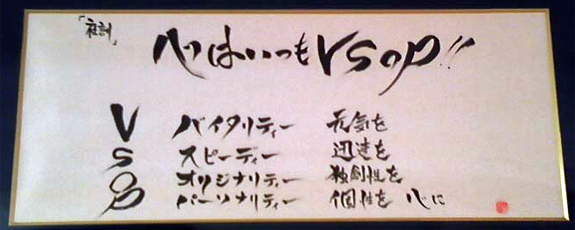 「社訓」
心はいつもVSOP!!
V バイタリティー 元気を
S スピーディー 迅速を
O オリジナリティー 独創性を
P パーソナリティー 個性を 心に